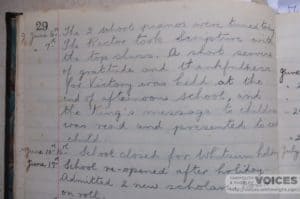 29
June 6th The 2 school pianos were tuned today
7th The Rector took Scripture with
the top class. A short service
of gratitude and thankfulness
for Victory was held at the
end of afternoon school, and
the King's message to children
was read and presented to each
child.
June School closed for Whitsun holiday
June 17th School re-opened after holiday
Admitted 2 new scholars
on roll.
June
July
VOICES